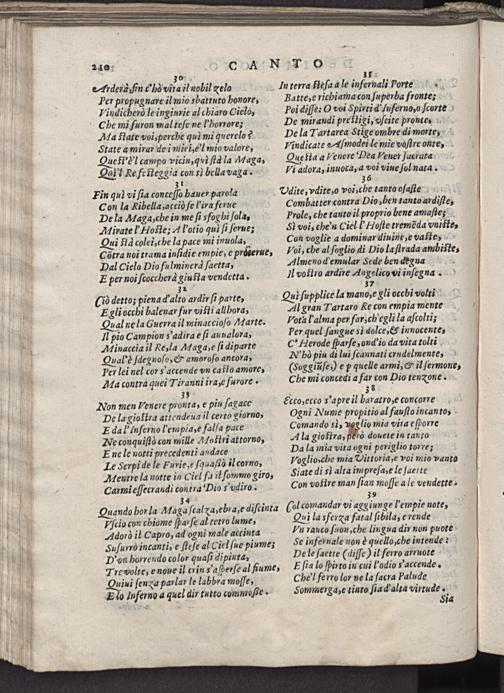 240
CANTO
30
Arderà fin c'hò vita il nobil zelo
Per propugnare il mio sbattuto honore,
Vindicherò le ingiurie al chiaro Cielo,
Che mi furon mal tese ne l'horrore;
Ma state voi, perche quì mi querelo?
State a mirar de i miei, è'l mio valore,
Quest'è'l campo vicin, quì stà la Maga,
Qui'l Re festeggia con sì bella vaga.
31
Fin quì vi sia concesso hauer parola
Con la Ribella, acciò se l'ira ferue
De la Maga, che in me si sfoghi sola,
Mirate l'Hoste; A l'otio quì si serue;
Quì stà colei, che la pace mi inuola,
Cōtra noi trama insidie empie, e proterue,
Dal Cielo Dio fulminerà saetta,
E per noi scoccherà giusta vendetta.
32
Ciò detto; piena d'alto ardir si parte,
E gli occhi balenar fur visti allhora,
Qual ne la Guerra il minaccioso Marte.
Il pio Campion s'adira e si aunalora,
Minaccia il Re, la Maga, e si diparte
Qual'è sdegnoso, & amoroso ancora,
Per lei nel cor s'accende vn casto amore,
Ma contra quei Tiranni ira, e furore.
33
Non men Venere pronta, e piu sagace
De la giostra attendeua il certo giorno,
E da l'Inferno l'empia, e falsa pace
Ne conquistò con mille Mostri attorno,
E ne le notti precedenti audace
Le Serpi de le Furie, e squassò il corno,
Mentre la notte in Ciel fa il sommo giro,
Carmi essecrandi contra Dio s'vdiro.
34
Quando hor la Maga scalza, ebra, e discinta
Vscio con chiome sparse al tetro lume,
Adorò il Capro, ad ogni male accinta
Susurrò incanti, e stese al Ciel sue piume;
D'vn horrendo color quasi dipinta,
Tre volte, e noue il crin s'asperse al fiume,
Quiui senza parlar le labbra mosse,
E lo Inferno a quel dir tutto commosse.
35
In terra stesa a le infernali Porte
Batte, e richiama con superba fronte;
Poi disse: O voi Spirti d'Inferno, o scorte
De mirandi prestigi, vscite pronte,
De la Tartarea Stige ombre di morte,
Vindicate Asmodei le mie vostre onte,
Questa a Venere Dea Vener sacrata
Vi adora, inuoca, a voi viue sol nata.
36
Vdite, vdite, o voi, che tanto osaste
Combatter contra Dio, ben tanto ardiste,
Prole, che tanto il proprio bene amaste;
Sì voi, che'n Ciel l'Hoste tremēda vniste,
Con voglie a dominar diuine, e vaste,
Voi, che al soglio di Dio la strada ambiste,
Almeno d'emular Sede ben degna
Il vostro ardire Angelico vi insegna.
37
Quì supplice la mano, e gli occhi volti
Al gran Tartaro Re con empia mente
Vota l'alma per far, ch'egli la ascolti;
Per quel sangue sì dolce, & innocente,
C'Herode sparse, ond'io da vita tolti
N'hò piu di lui scannati crudelmente,
(Soggiūse,) e p quelle armi, & il sermone,
Che mi concedi a far con Dio tenzone.
38
Ecco, ecco s'apre il baratro, e concorre
Ogni Nume propitio al fausto incanto,
Comando sì, voglio mia vita esporre
A la giostra, però douete in tanto
Da la mia vita ogni periglio torre;
Voglio, che mia Vittoria, e voi mio vanto
Siate di sì alta impresa, e le saette
Con vostre man sian mosse a le vendette.
39
Col comandar vi aggiunge l'empie note,
Quì la sferza fatal sibila, e rende
Vn rauco suon, che lingua dir non puote
Se infernale non è quello, che intende:
De le saette (disse) il ferro arruote
E sia lo spirto in cui l'odio s'accende.
Che'l ferro lor ne la sacra Palude
Sommerga, e tinto sia d'alta virtude.
Sia